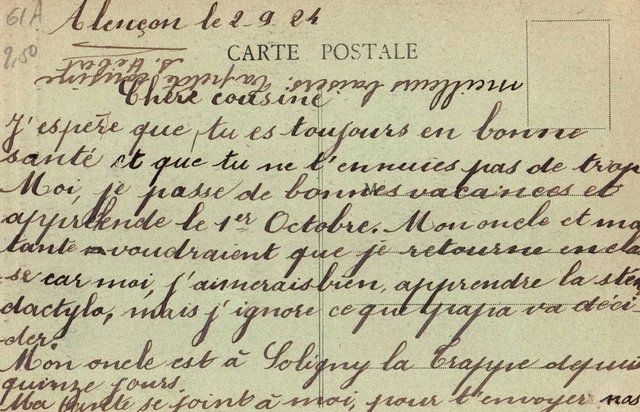 61A
2,50
Alençon le 2-9-24
CARTE POSTALE
Chère cousine
J'espère que, tu es toujours en bonne
santé et que tu ne t'ennuies pas de trop
Moi, je passe de bonnes vacances et
appréhende le 1er Octobre. Mon oncle et ma
tante voudraient que je retourne en clas
se car moi, j'aimerais bien, apprendre la stén
dactylo, mais j'ignore ce que papa va déci
der.
Mon oncle est à Soligny la Trappe depuis
quinze jours.
Ma tante se joint à moi, pour t'envoyer nos
meilleurs baisers. Ta petite cousine
S. Hébert